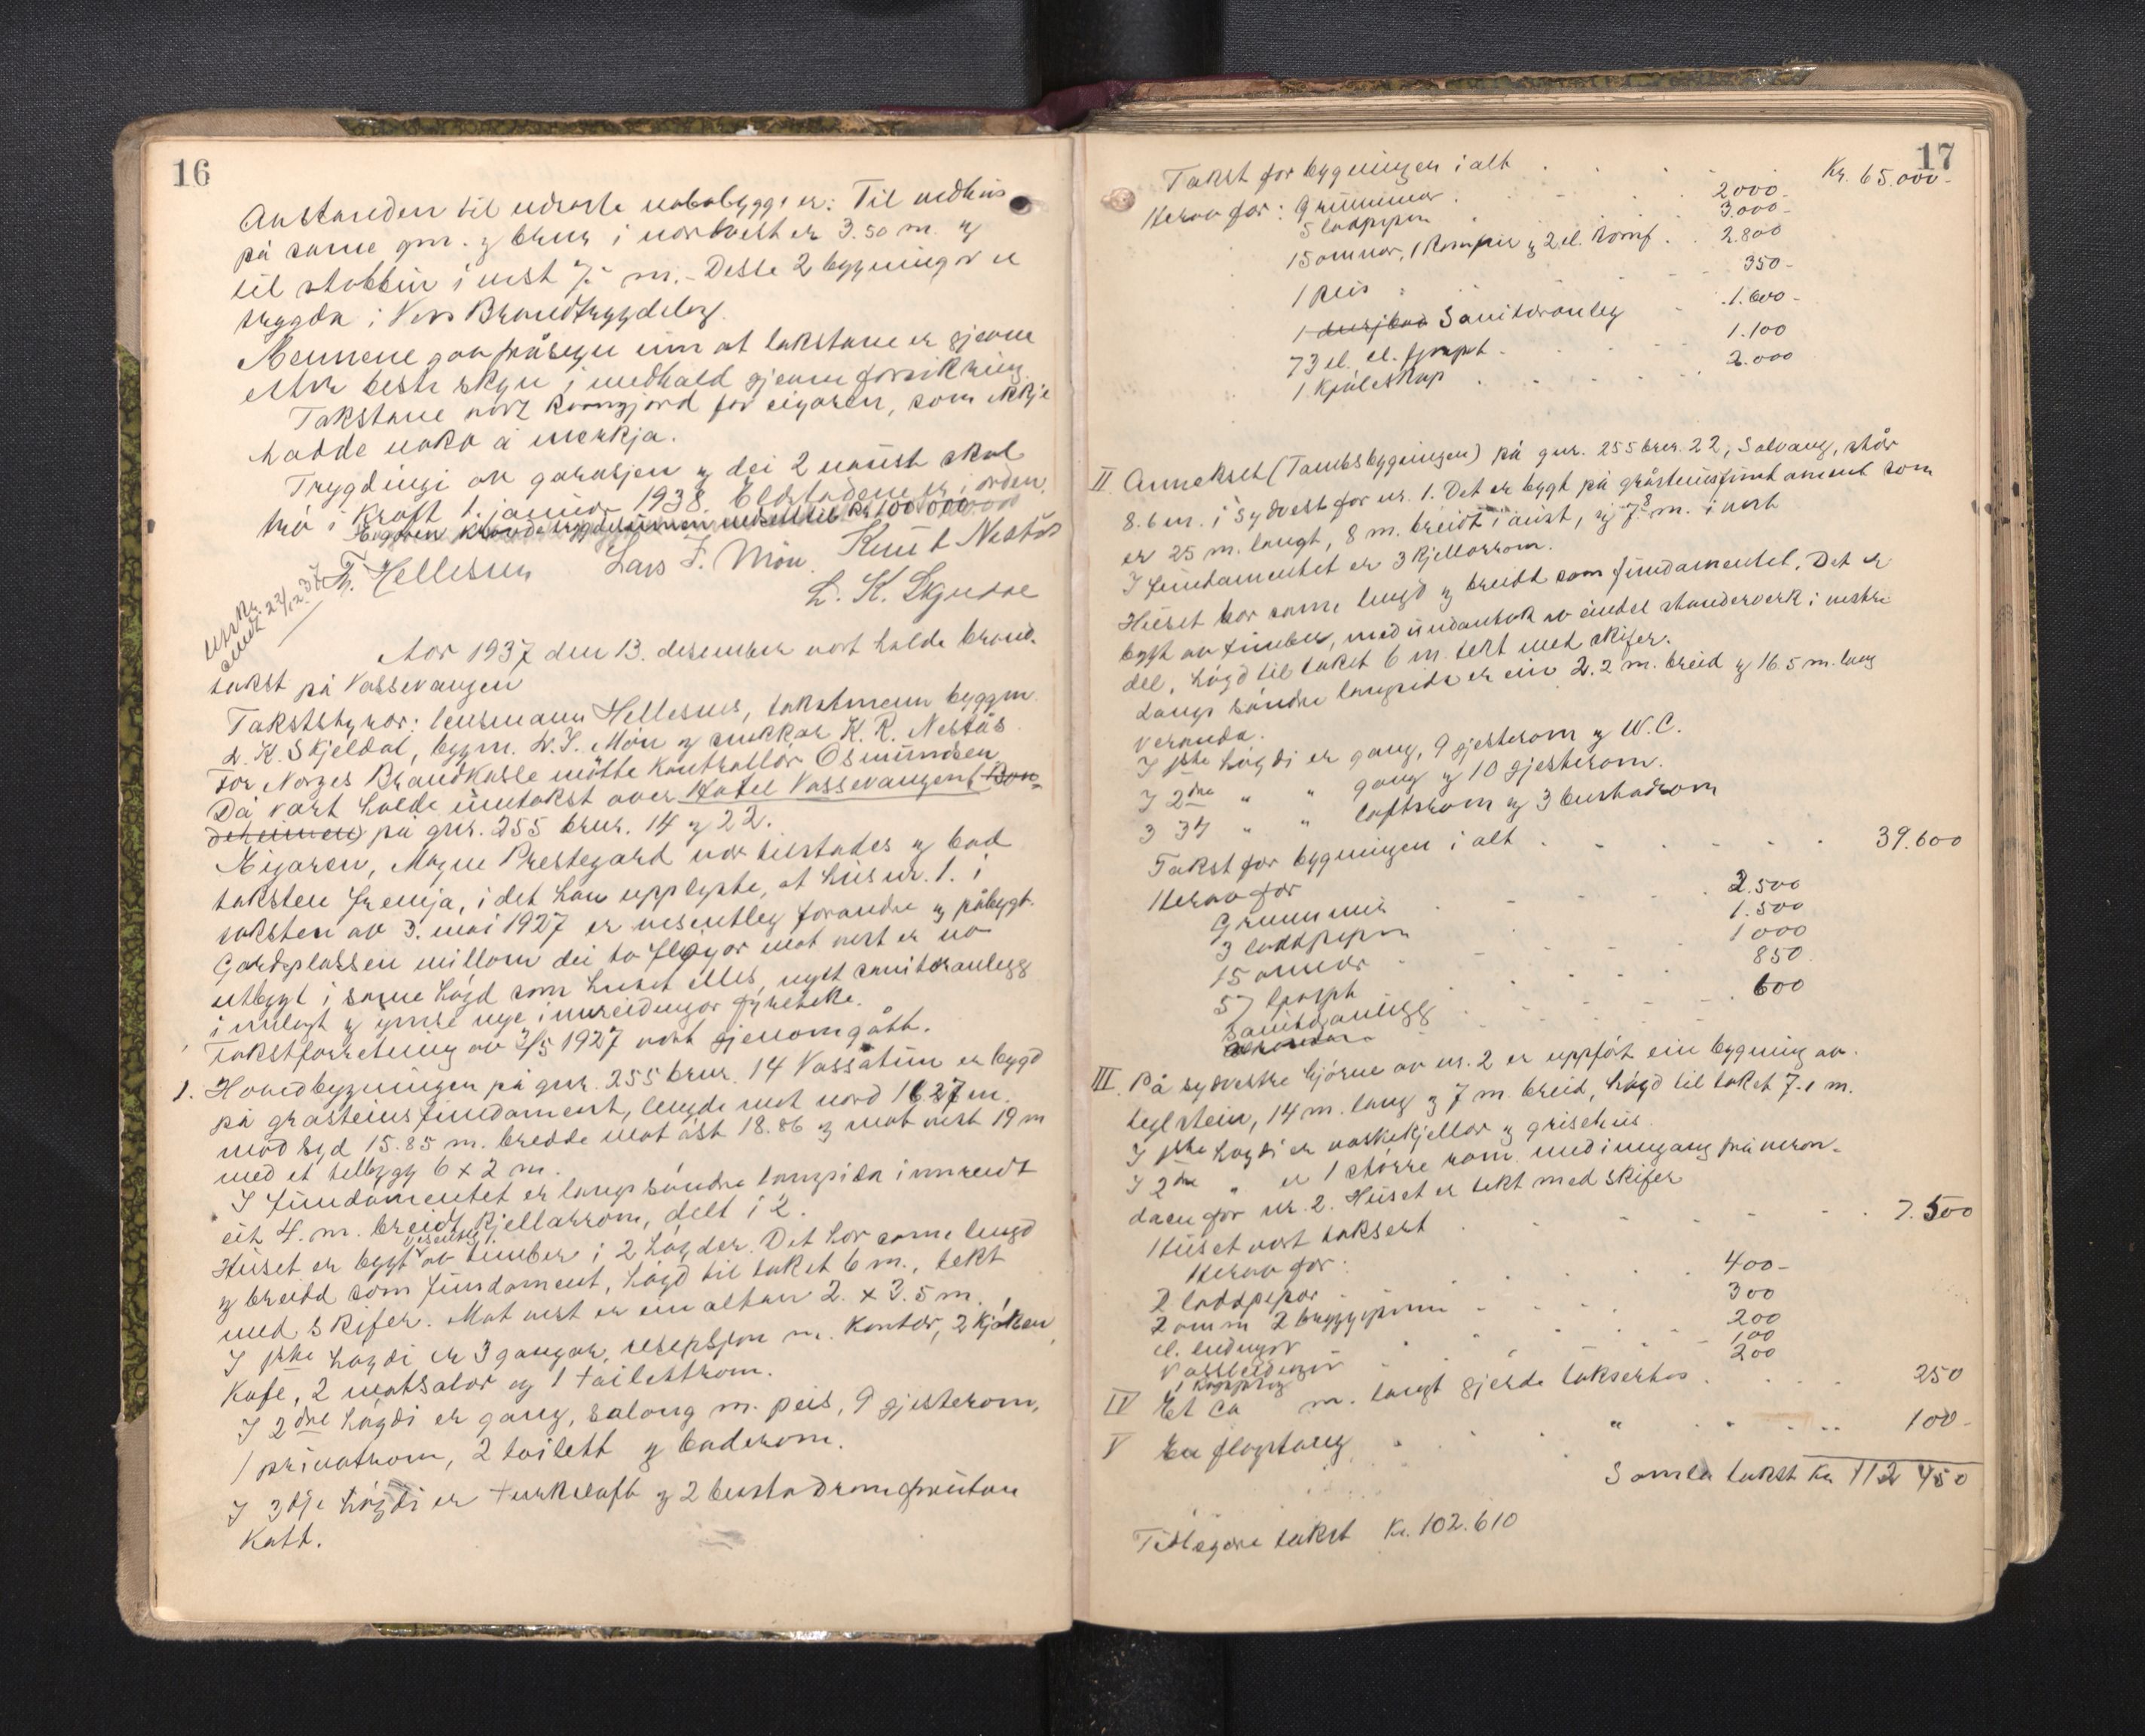 16
Avstanden til næraste nabobygg er: Til vedhus
på same gnr. og brnr i nordvest er 3.50 m. og
til stabbur i vest 7.- m. - Desse 2 bygningar er
trygda i Voss Brandtrygdelag.
Mennene gav frå segn um at takstane er gjevne
etter beste skyn i medhald gjevne forskrifter.
Takstane vart kunngjord for eigaren, som ikkje
hadde noko å merkja.
Trygdingi av garasjen og dei 2 naust skal
trå i kraft 1. januar 1938. Eldstadene er i orden.
Th. Hellesnes Lars J. Møn Knut Nestås
L. K. Skjeldal
Utskr.
sendt 22/12.37
Aar 1937 den 13. desember vart halde brand-
takst på Vossevangen
Takststyrar: lensmann Hellesnes, takstmenn byggm.
L. K. Skjeldal, byggm. L. J. Møn og snikkar K. R. Nestås
For Norges Brandkasse møtte kontrollør Osmundsen
Då vart halde umtakst over Hotel Vossevangen (Bon-
deheimen) på gnr. 255 brnr. 14 og 22.
Eigaren, Magne Prestegard var tilstades og bad
taksten fremja, i det han upplyste, at hus nr. 1. i
taksten av 3. mai 1927 er vesentleg forandra og påbygt.
Gardsplassen millom dei to fløyar mot vest er no
utbygt i same høgd som huset elles, nytt sanitæranlegg
innlagt og ymse nye innreidingar fyreteke.
Takstforretning av 3/5 1927 vart gjenomgått.
1. Hovedbygningen på gnr. 255 brnr. 14 Vossatun er bygd
på gråsteinsfundament, lengde mot nord 16.27 m.
mod syd 15.85 m. bredde mot aust 18.86 og mot vest 19 m
med et tilbygg 6 x 2 m.
I fundamentet er langs søndre langsida innreidt
eit 4. m. breidt kjellarrom, delt i 2.
vesentleg
Huset er bygt av timber i 2 høgder. Det har same lengd
og breidd som fundament, høgd til taket 6 m., tekt
med skifer. Mot vest er ein altan 2. x 3.5 m.
I fyrste høgdi er 3 gangar, resepsjon m. kontor, 2 kjøken,
kafe, 2 matsalar og 1 toilettrom.
I 2dre høgdi er gang, salong m. peis, 9 gjesterom,
1 privatrom, 2 toilett og baderom.
I 3dje høgdi er turkeloft og 2 bustadrom forutan
katt.
17
Takst for bygningen i alt . . . . Kr. 65.000-
Herav for: Grunnmur . . . . 2000-
5 loddpipor . . . . 3.000-
15 omnar, 1 komfir og 2 el. komf. . . 2.800
1 peis . . . . 350-
1 Sanitæranleg . 1.600-
73 el. el. lyspkt. . . . . 1.100
1 Kjøleskap . . . . 2.000
II Annekset (Tambsbygningen) på gnr. 255 brnr. 22, Solvang, står
8.6 m. i sydvest for nr. 1. Det er bygt på gråsteinsfundament som
er 25 m. langt, 8 m. breidt i aust, og 7.8 m. i vest
I fundamentet er 3 kjellarrom.
Huset har same lengd og breidd som fundamentet. Det er
bygt av timber, med undantak av eindel standerverk i vestre
del, høgd til taket 6 m. tekt med skifer.
Langs søndre langside er ein 2.2 m. breid og 16.5 m. lang
veranda.
I fyrste høgdi er gang, 9 gjesterom og W.C.
I 2dre " " gang og 10 gjesterom.
I 3dj " " loftsrom og 3 bustadrom
Takst for bygningen i alt . . . . . 39.600
Herav for
Grunnmur . . . . 2.500
3 loddpipor . . . . 1.500
15 omnar . . . . 1000
57 lyspkt . . . . 850
Sanitæranlegg . . . . 600
III. På sydvestre hjørne av nr. 2 er uppført ein bygning av
teglstein, 14 m. lang og 7 m. breid, høgd til taket 7.1 m.
I fyrste høgdi er vaskekjellar og grisehus.
I 2dre " er 1 større rom med inngang frå veran-
daen for nr. 2. Huset er tekt med skifer
Huset vart taksert . . . . . 7.500
Herav for:
2 loddpipor . . . . 400-
2 omn 2 bryggjepannor . . . . 300
el. ledningar . . . . 200
Vassleidningar . . . . 100
200
IV Et ca m. langt gjerde taksertes . . . . 250
V En flagstang . . . " . . . 100-
Samla takst kr. 112 450
Tidlegare takst Kr. 102.610